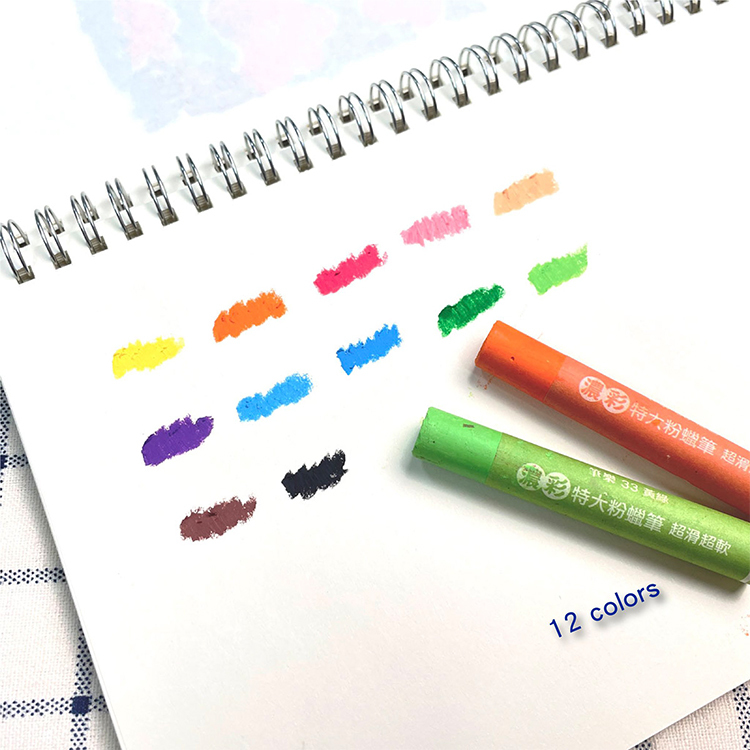 濃彩 特大粉蠟筆 超滑
筆樂 33 黃綠
濃彩 特大粉蠟筆 超滑超軟
12 colors